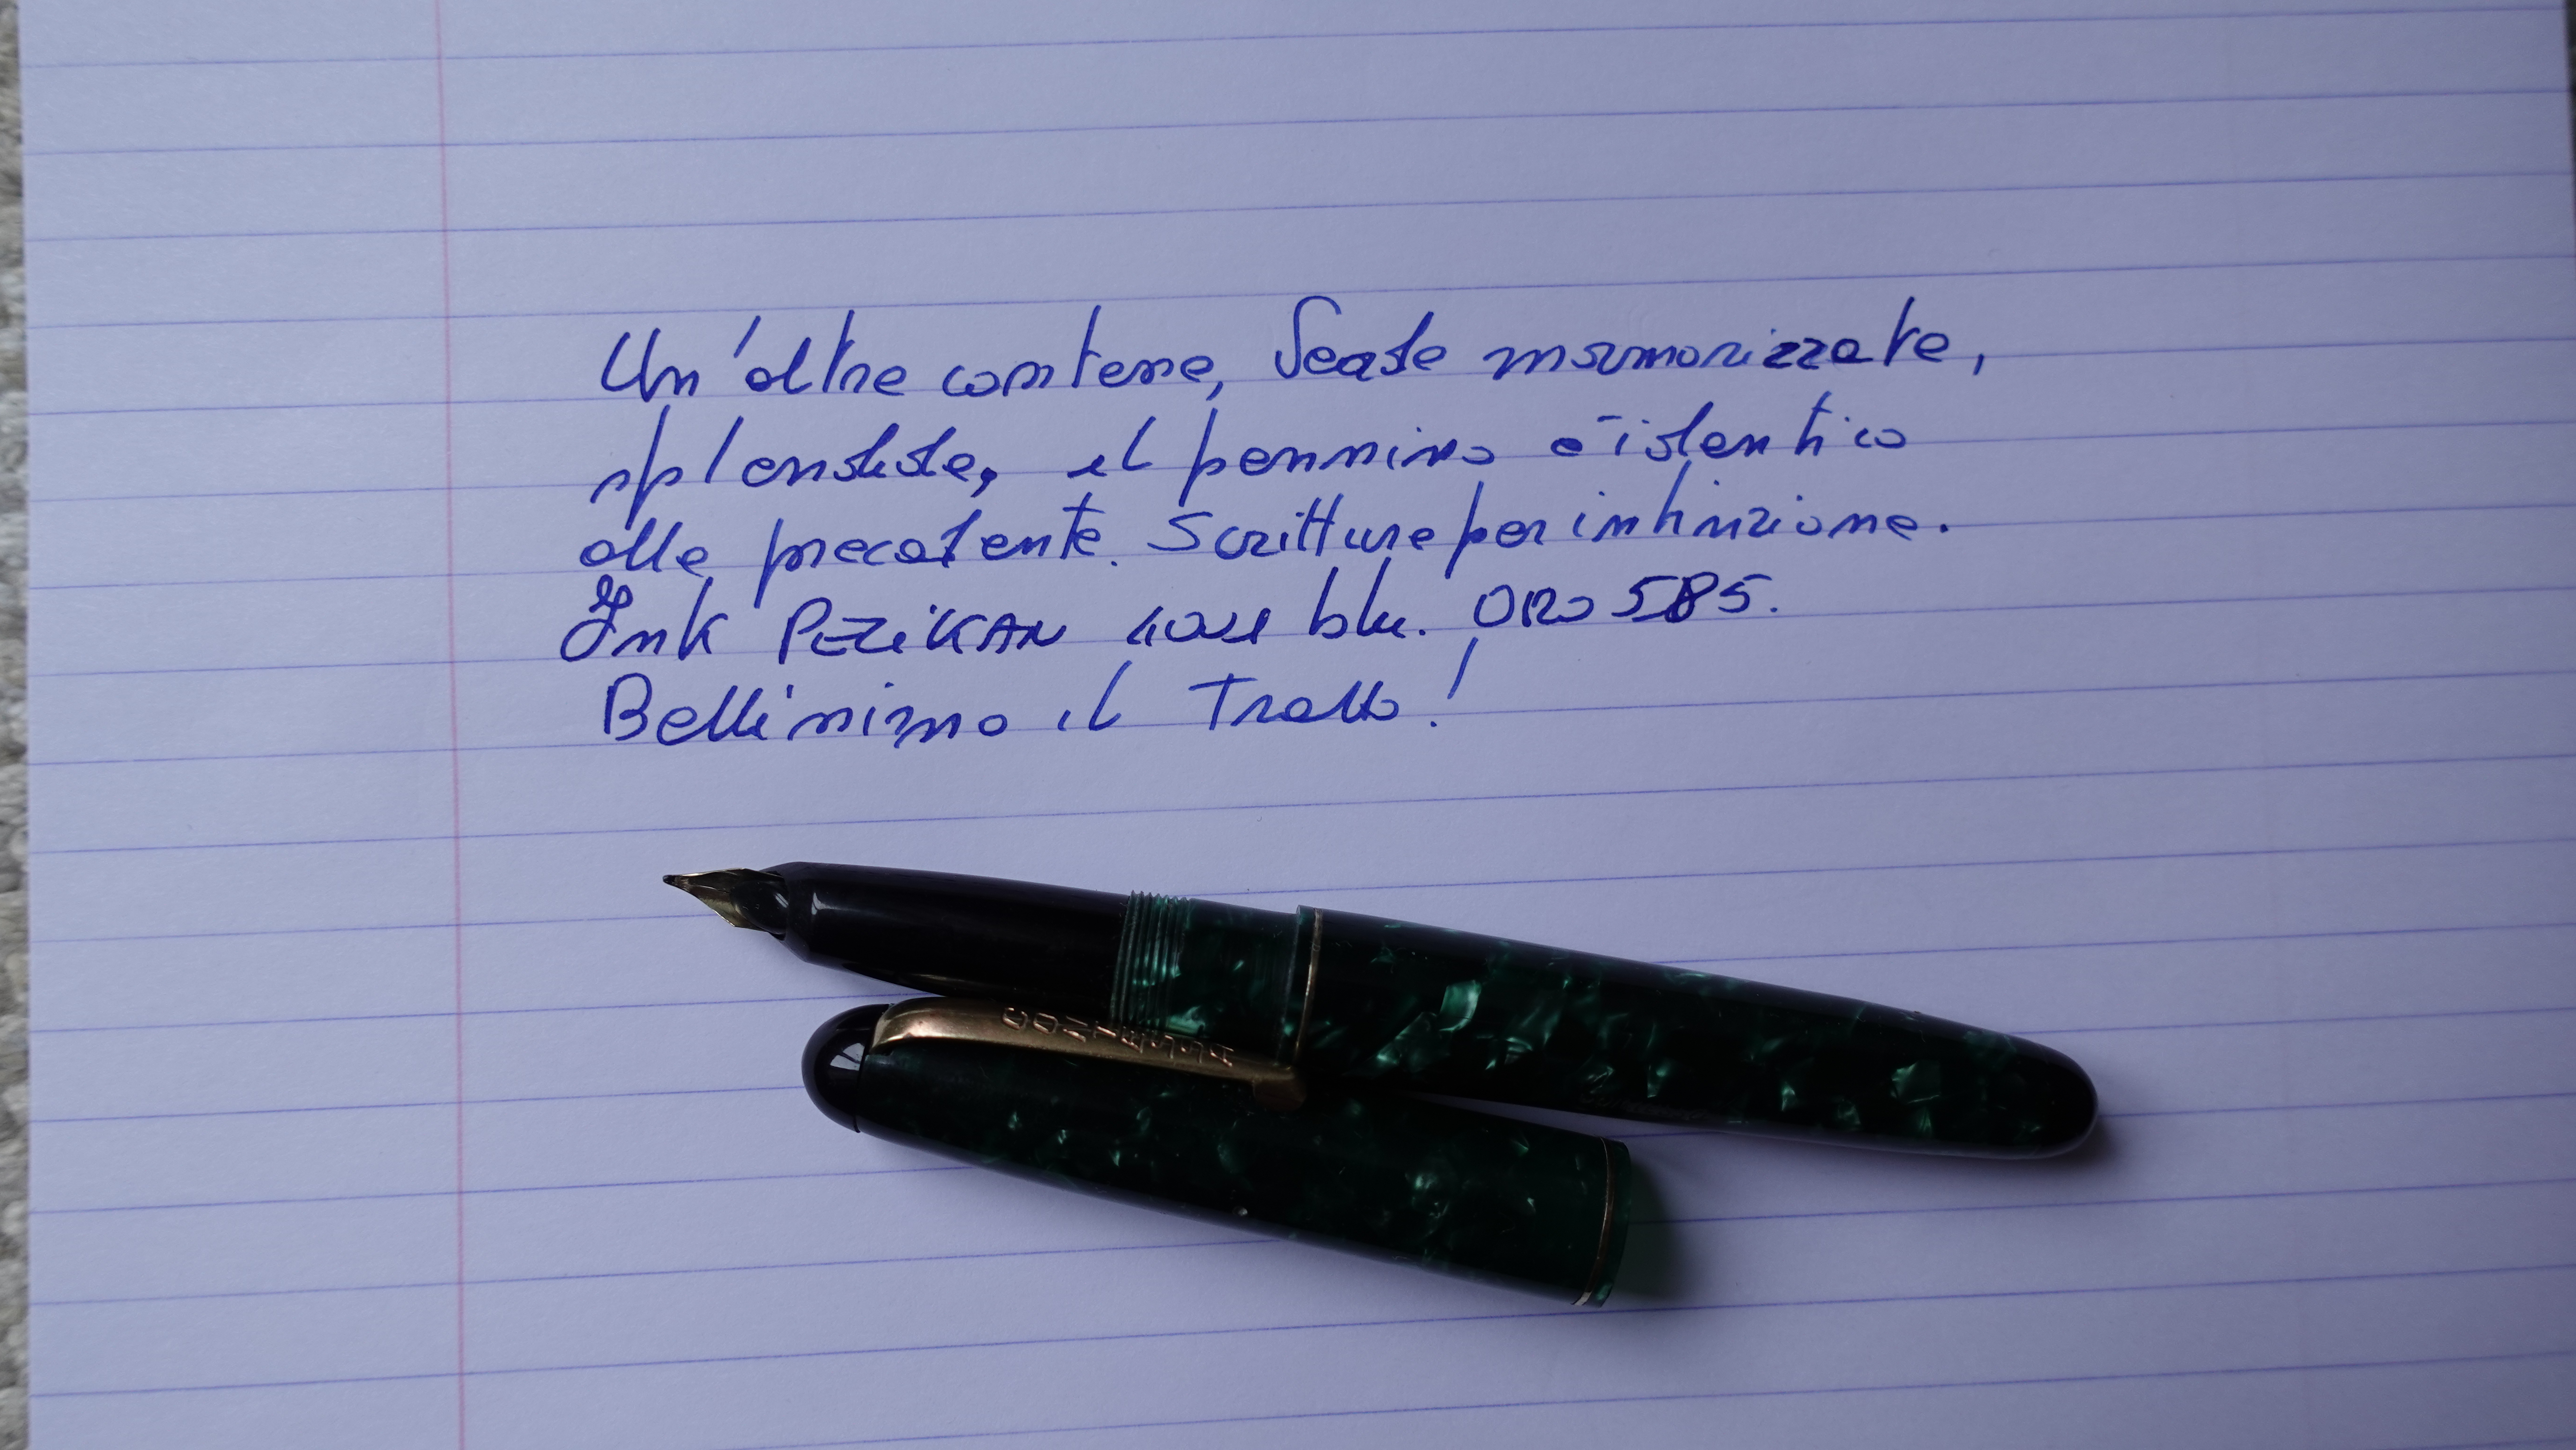 Un'altra contessa, verde marmorizzata,
splendida, il pennino è identico
alla precedente. Scrittura per intinzione.
Ink PELIKAN 4001 blu. ORO 585.
Bellissimo il Tratto!
CONTESSA